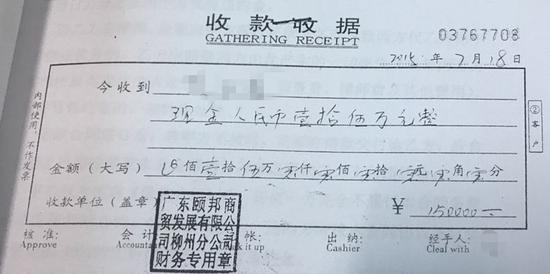 收款收据
GATHERING RECEIPT
03767708
2015年2月18日
今收到
现金人民币壹拾伍万元整
金额（大写） 佰壹拾伍万零仟零佰零拾零元零角零分
收款单位（盖章） ￥150000—
广东颐邦商
贸发展有限公
司柳州分公司
财务专用章
内部使用，不作发票
②客户
核准: 会计 帐: 出纳: 经手人:
Approve Accountant k it up Cashier Cleal with